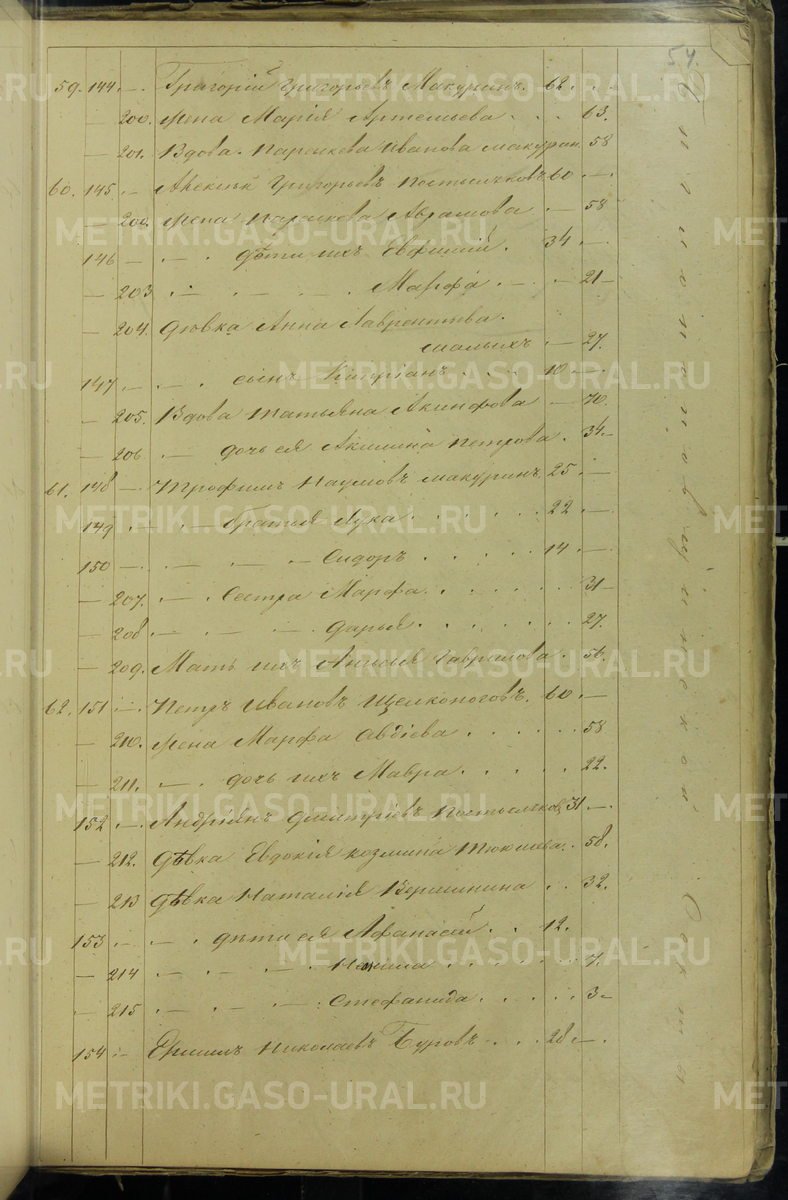 54.
59. 144 — Григорій Григорьевъ Макуринъ. 62. —
— 200. жена Марія Артемьева . . . 63.
— 201. Вдова Параскева Иванова Макурин. 58
60. 145 — Алексѣй Григорьевъ Костылековъ 60 —
— 202. жена Параскева Абрамова . — 58
146 — дѣти ихъ Евфимій . 34 —
— 203 Марфа . — 21 —
— 204. дѣвка Анна Лаврентьева
малыхъ — 27.
147 — сынъ Кипріанъ . . . 10 —
— 205. Вдова Татьяна Акинфова — 70.
— 206 — дочь ея Акилина Петрова . 34 —
61. 148 — Трофимъ Наумовъ Макуринъ 25 —
149 — братья Лука . . . 22 —
150 — Сидоръ . . . 14 —
— 207. — сестра Марфа . . . 31 —
— 208 — Дарья . . . 27.
— 209. Мать ихъ Гаврилова . 56.
62. 151 — Петръ Иванов Щелконоговъ. 60. —
— 210. жена Марфа Авдіева . . . 58
— 211. — дочь ихъ Мавра . . . 22.
152 — Андріянъ Димитріевъ 31 —
— 212. дѣвка Евдокія Козмина . 58.
— 213 дѣвка Наталія Вершинина . . 32.
153 — дѣти ея Афанасій . . 12.
— 214 — . . . 7.
— 215 — Стефанида . . . 3 —
154 — Ефимъ Николаевъ Буровъ . . . 28 —
METRIKI.GASO-URAL.RU